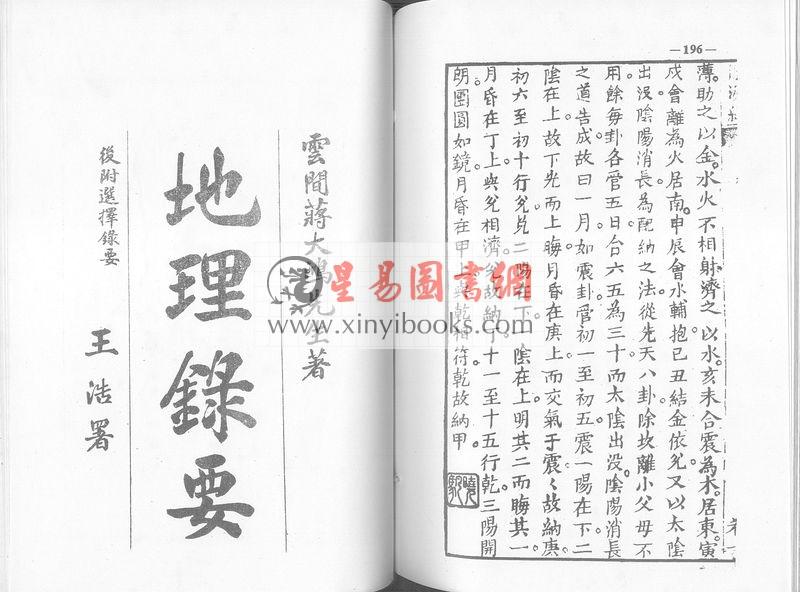 —196—
薄助之以金水火不相射濟之以水亥未合震為木居東寅
戌會離為火居南申辰會水輔抱巳丑結金依兌又以太陰
出没陰陽消長為配納之法從先天八卦除坎離小父母不
用餘每卦各管五日合六五為三十而太陰出没陰陽消長
之道告成故曰一月如震卦管初一至初五震一陽在下二
陰在上故下光而上晦月昏在庚上而交氣于震々故納庚
初六至初十行兌兌二陽在下陰在上明其二而晦其一
月昏在丁上與兌相濟兌故納丁十一至十五行乾三陽開
朗團圓如鏡月昏在甲上與乾相符乾故納甲
雲間蔣大鴻先生著
地理錄要
後附選擇錄要
王浩署
星易圖書網
www.xinyibooks.com